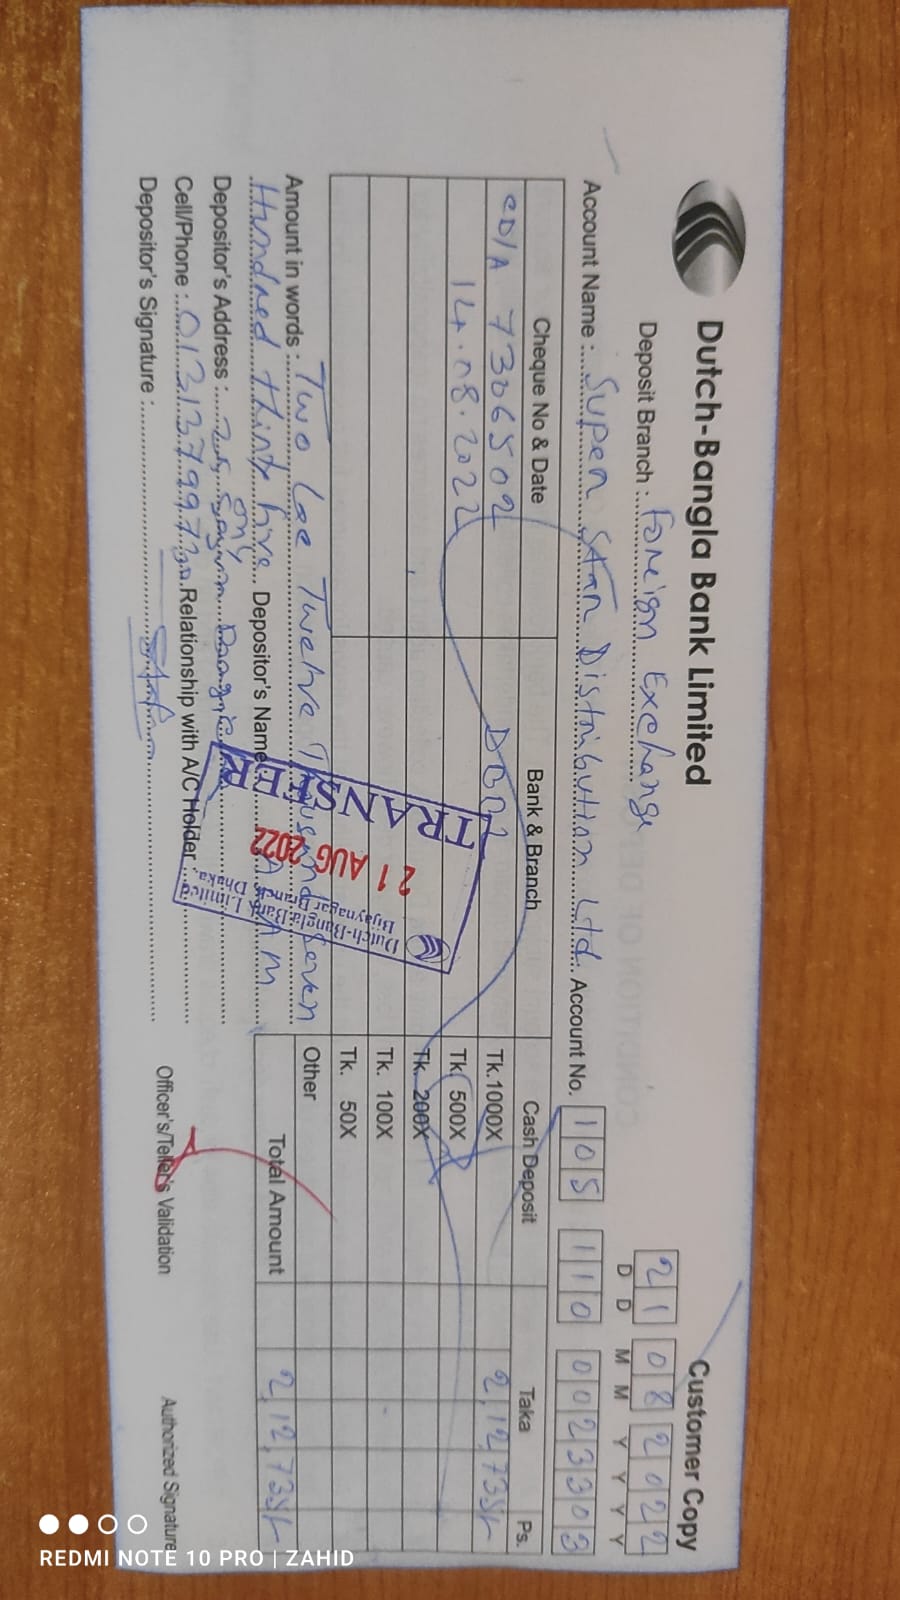 Dutch-Bangla Bank Limited
Customer Copy
Deposit Branch : Foreign Exchange
21 08 2022
D D M M Y Y Y Y
Account Name : Super Star Distribution Ltd. Account No. 105 110 0023303
Cheque No & Date Bank & Branch Cash Deposit Taka Ps.
CD/A 7306502 DBBL Tk.1000X 2,12,735/-
14.08.2022 Tk. 500X
Tk. 200X
Tk. 100X
Tk. 50X
Other
Total Amount 2,12,735/-
Amount in words : Two Lac Twelve Thousand Seven
Hundred thirty five Depositor's Name :
only
Depositor's Address : 
Cell/Phone : 01313799730 Relationship with A/C Holder :
Depositor's Signature :
Officer's/Teller's Validation Authorized Signature
TRANSFER
21 AUG 2022
Dutch-Bangla Bank Limited
Bijaynagar Branch, Dhaka.
REDMI NOTE 10 PRO | ZAHID